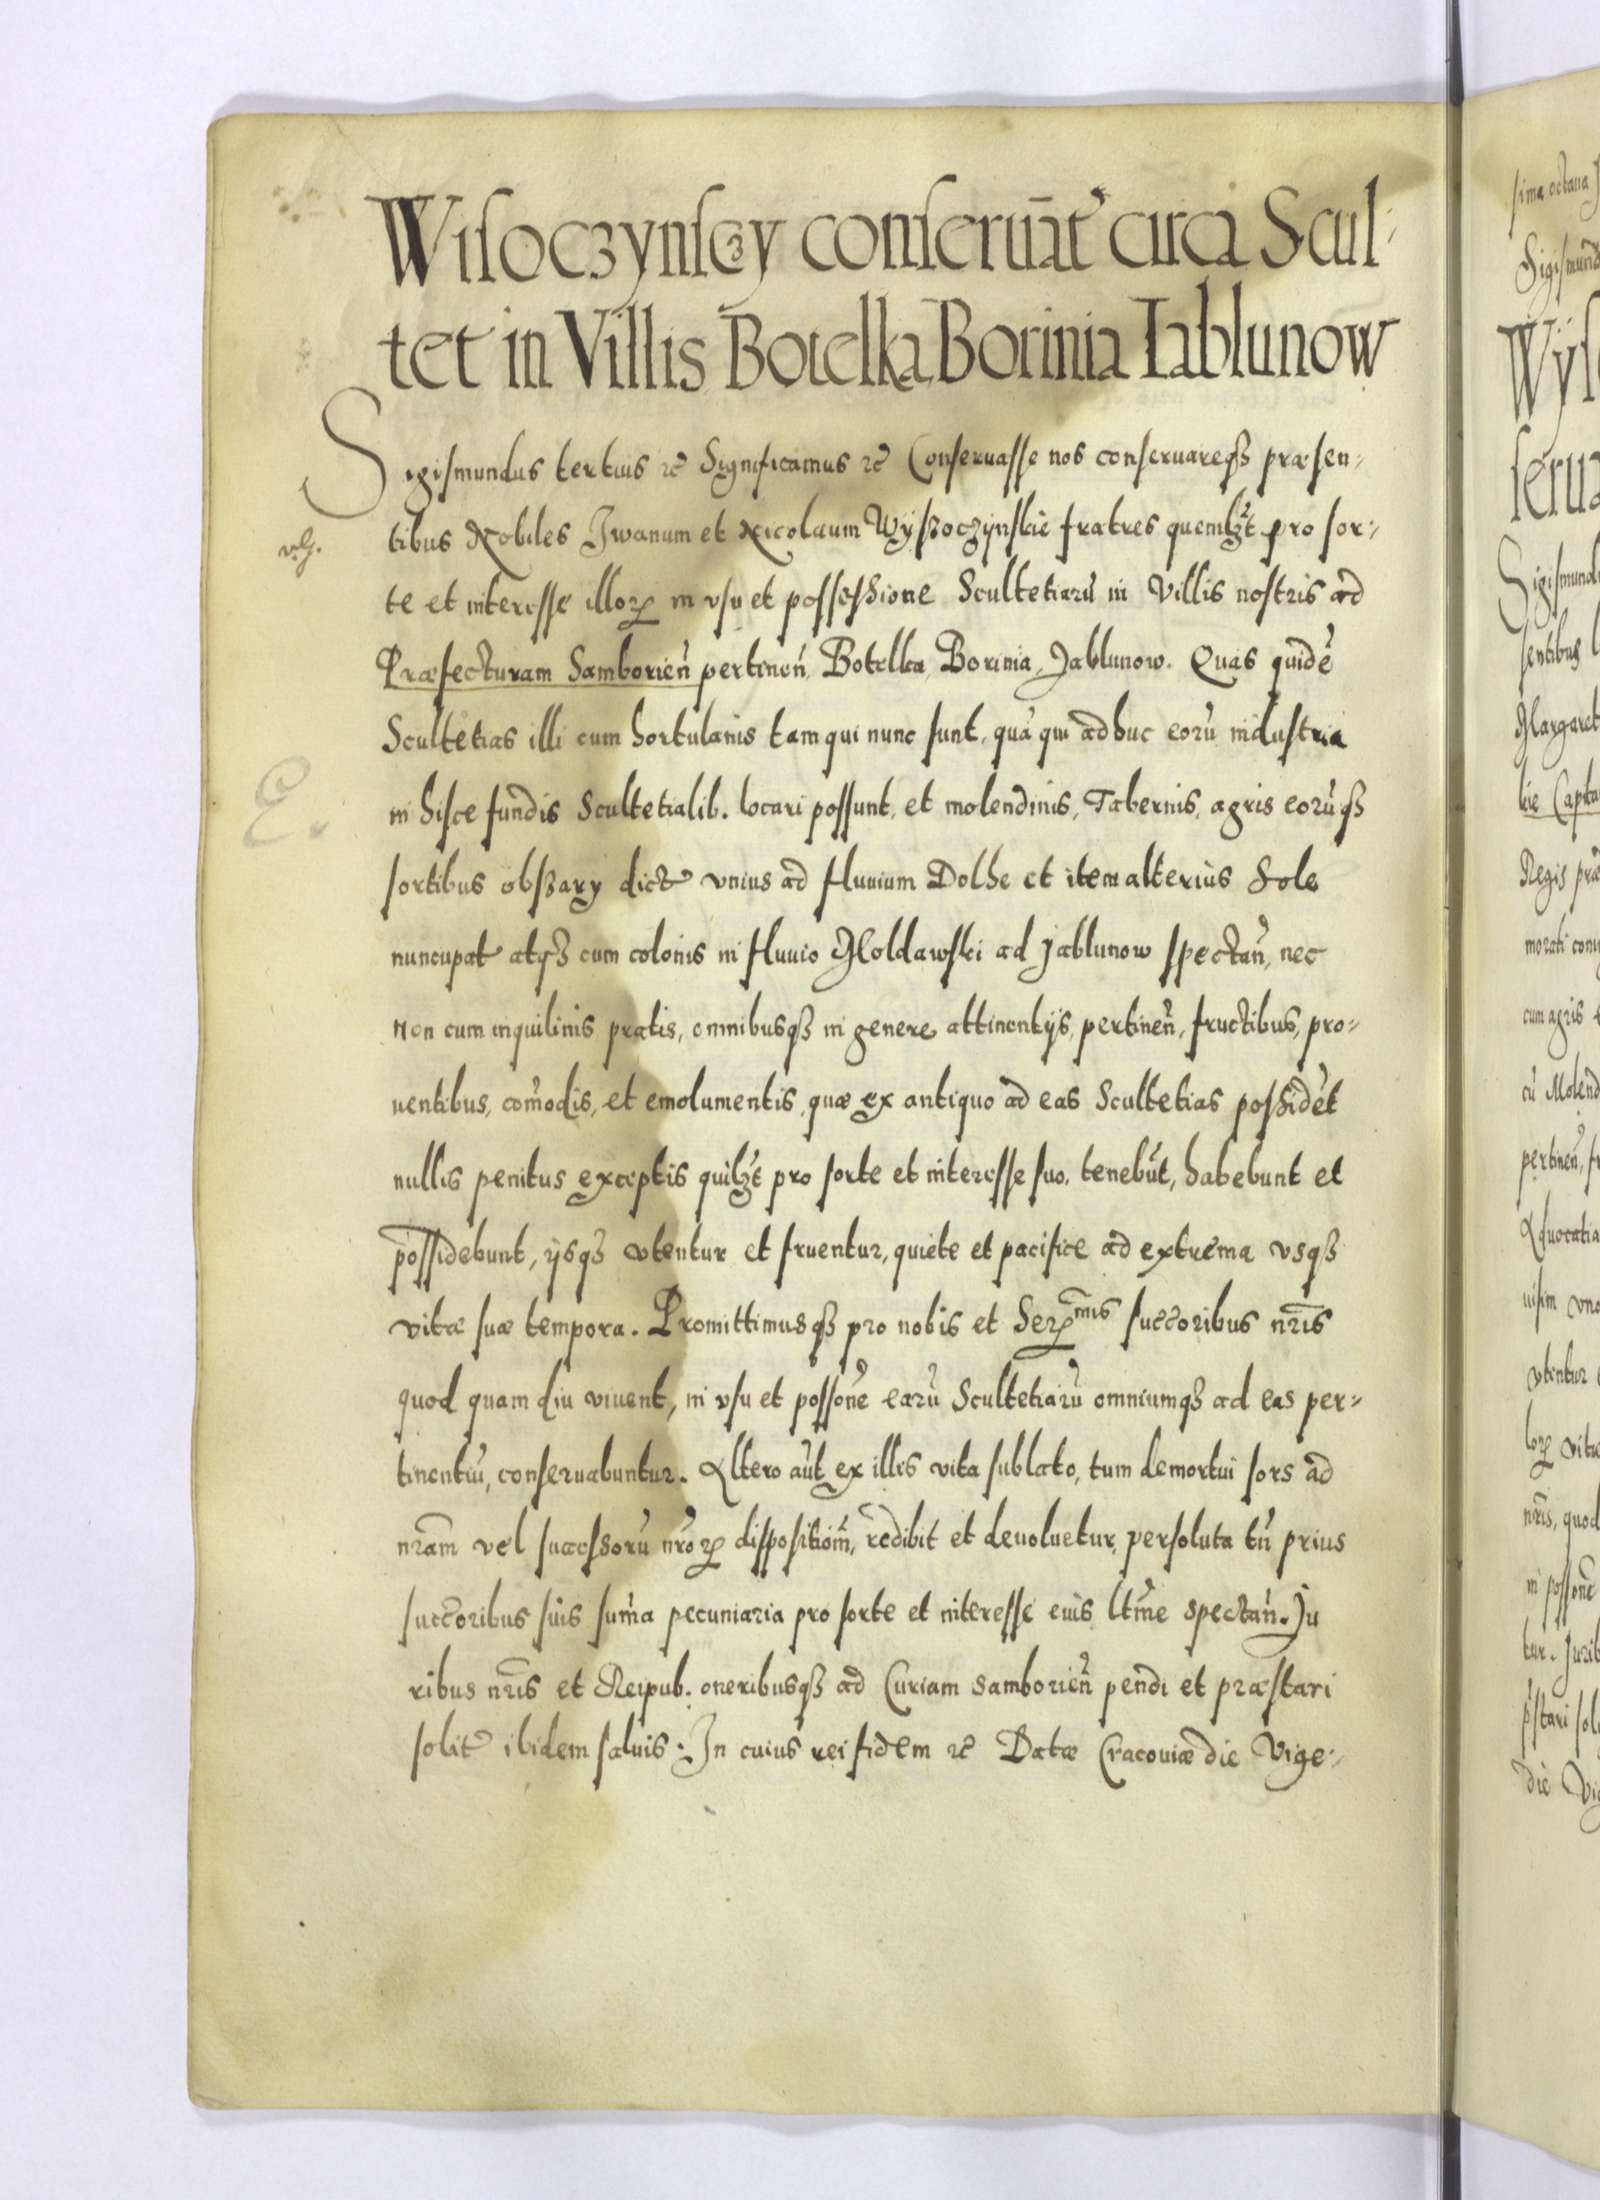 Wisoczynsczy conseruāt circa Scul-
tet in Villis Botelka Borinia Iablunow
Sigismundus tertius &c Significamus &c Conseruasse nos conseruareqȝ præsen-
tibus Nobiles Jwanum et Nicolaum Wyszoczynskie fratres quemlꝫt pro sor-
te et interesse illoꝝ in vsu et possessione Scultetiarū in Villis nostris ad
Præfecturam Samborień pertineń, Botelka, Borinia, Jablunow. Quas quidē
Scultetias illi cum hortulanis tam qui nunc sunt, quā qui adhuc eorū industria
in hisce fundis Scultetialib. locari possunt, et molendinis, Tabernis, agris eorūqȝ
sortibus obszary dict vnius ad fluuium Dolhe et item alterius Sole
nuncupat atqȝ cum colonis in fluuio Moldawski ad Jablunow spectań, nec
non cum inquilinis pratis, omnibusqȝ in genere attinentijs, pertineń, fructibus, pro-
uentibus, com̄odis, et emolumentis, quæ ex antiquo ad eas Scultetias possidēt
nullis penitus exceptis quilꝫt pro sorte et interesse suo, tenebūt, habebunt et
possidebunt, ijsqȝ vtentur et fruentur, quiete et pacifice ad extrema vsqȝ
vitæ suæ tempora. Promittimusqȝ pro nobis et Serꝝmis succoribus nr̄is
quod quam diu viuent, in vsu et possone earū Scultetiarū omniumqȝ ad eas per-
tinentiū, conseruabuntur. Altero aūt ex illis vita sublato, tum demortui sors ad
nr̄am vel successorū nr̄oꝝ dispositiom̄, redibit et deuoluetur, persoluta tn̄ prius
succoribus suis sum̄a pecuniaria pro sorte et interesse eius ltm̄e spectań. Ju
ribus nr̄is et Reipub. oneribusqȝ ad Curiam Samborień pendi et præstari
solit ibidem saluis. In cuius rei fidem &c Datæ Cracouiæ die Vige-
E.
sima octaua
Sigismund
Sigismund
sentibus
Margaret
kie Capta
Regis præ
morati
cum agris
cū Molend
pertineń,
vtentur
nr̄is, quod
in possone
die